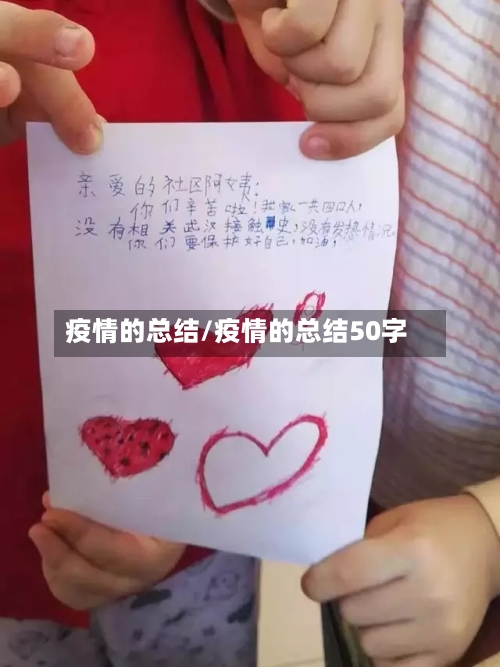 亲爱的社区阿姨：
你们辛苦啦！我家一共四口人，
没有相关武汉接触史，没有发热情况。
你们要保护好自己，加油！
疫情的总结/疫情的总结50字